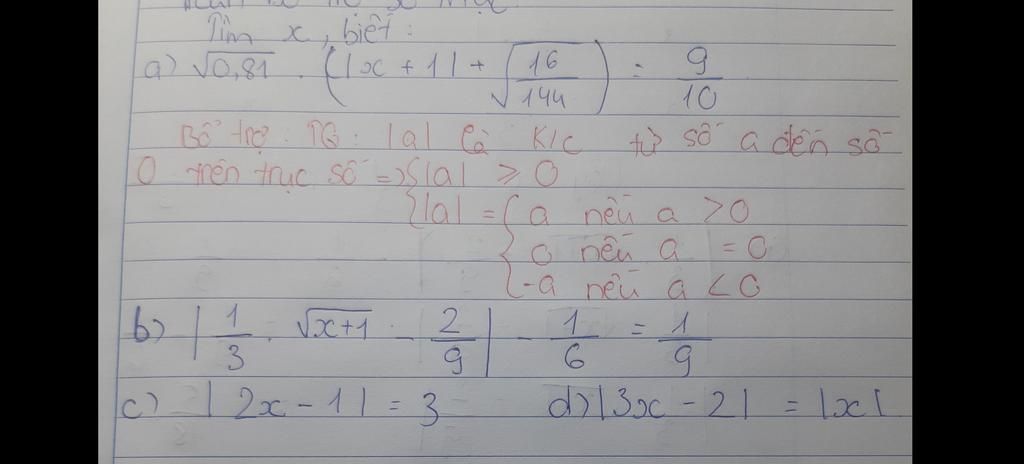 Tìm x, biết:
a) √0,81 . (|x + 1| + √(16/144)) = 9/10
Bổ trợ: TQ: |a| là K/c từ số a đến số
0 trên trục số => { |a| ≥ 0
{ |a| = { a nếu a > 0
0 nếu a = 0
-a nếu a < 0
b) |1/3 . √x+1 - 2/9| - 1/6 = 1/9
c) |2x - 1| = 3 d) |3x - 2| = |x|